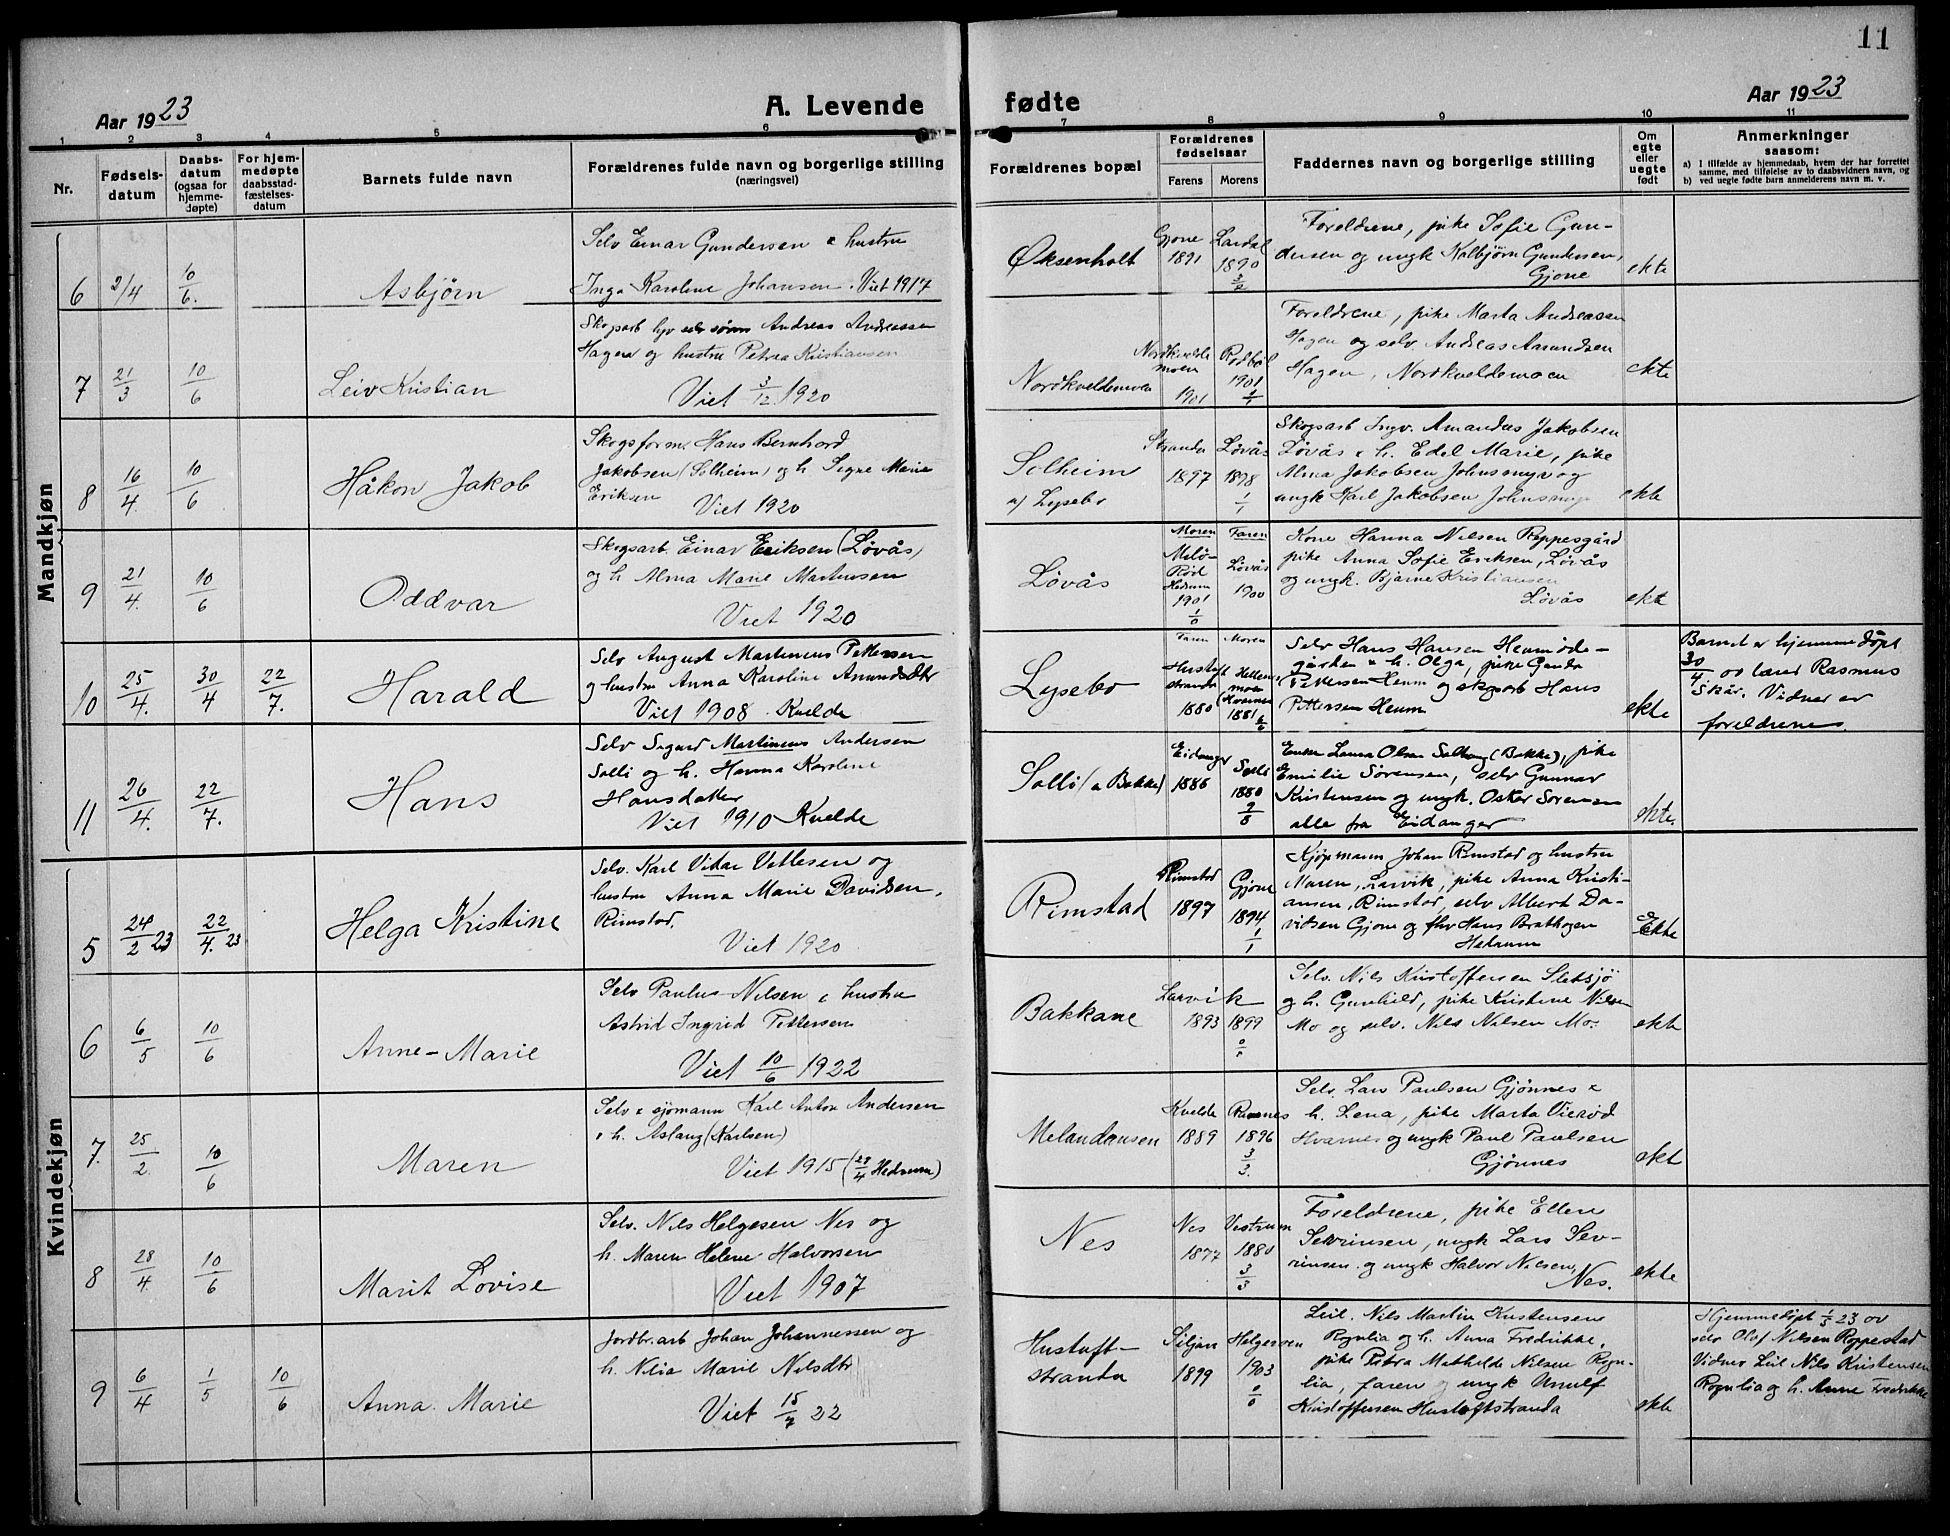 11
Aar 1923
A. Levende
fødte
Aar 1923
1 2 3 4 5 6 7 8 9 10 11
Nr.
Fødsels-
datum
Daabs-
datum
(ogsaa for
hjemme-
døpte)
For hjem-
medøpte
daabsstad-
fæstelses-
datum
Barnets fulde navn
Forældrenes fulde navn og borgerlige stilling
(næringsvei)
Forældrenes bopæl
Forældrenes
fødselsaar
Farens
Morens
Faddernes navn og borgerlige stilling
Om
egte
eller
uegte
født
Anmerkninger
saasom:
a) I tilfælde av hjemmedaab, hvem der har forrettet
samme, med tilføielse av to daabsvidners navn, og
b) ved uegte fødte barn anmelderens navn m. v.
Mandkjøn
6 2/4 10/6. Asbjørn
Selv Einar Gundersen & hustru
Inga Karoline Johansen. Viet 1917
Øksenholt
Gjone 1891
Lardal 1890
Foreldrene, pike Sofie Gun-
dersen og ungk Kolbjørn Gundersen,
Gjone
ekte
7 21/3 10/6 Leiv Kristian
Skogsarb Andreas Andreassen
Hagen og hustru Petra Kristiansen
Viet 3/12 1920
Nordkveldemoen
Nordkvelde
moen
1901
1901
Foreldrene, pike Marta Andreassen
Hagen og selv Andreas Amundsen
Hagen, Nordkveldemoen
ekte
8 16/4. 10/6 Håkon Jakob
Skogsform. Hans Bernhard
Jakobsen (Solheim) og h Signe Marie
Eriksen
Viet 1920
Solheim
a) Lysebo
1897
Løvås
1898
1/1
Skogsarb Ingv. Amandus Jakobsen
Løvås & h. Edel Marie, pike
Alma Jakobsen Johnsmyr og
ungk Karl Jakobsen Johnsmyr
ekte
9 21/4. 10/6 Oddvar
Skogsarb. Einar Eriksen (Løvås)
og h Alma Marie Martinsen
Viet 1920
Løvås
Moren
Hedrum
1901
Faren
Løvås
1900
Kone Hanna Nilsen Roppesgård
pike Anna Sofie Eriksen, Løvås
og ungk. Bjarne Kristiansen
Løvås
ekte
10 25/4. 30/4 22/7. Harald
Selv August Martinius Pettersen
og hustru Anna Karoline Amundsdtr
Viet 1908 Kvelde
Lysebo
Faren
Hustoft
stranda
1880
Moren
1881
Selv Hans Hansen Heum
gården & h. Olga, pike
Pettersen Heum og skogsarb Hans
Pettersen Heum
ekte
Barnet er hjemmedøpt
30/4. av lærer Rasmus
Skår. Vidner er
foreldrene.
11 26/4. 22/7. Hans
Selv Sigurd Martinius Andersen
Solli og h. Hanna Karoline
Hansdatter
Viet 1910 Kvelde
Solli (a Bakke)
Eidanger
1886
Solli
1880
Enke Laura Olsen (Bakke), pike
Emilie Sørensen, selv Gunnar
Kristensen og ungk. Oskar Sørensen
alle fra Eidanger
ekte.
Kvindekjøn
5 24/2 23 22/4. 23 Helga Kristine
Selv. Karl Vidar Vettesen og
hustru Anna Marie Davidsen,
Rimstad.
Viet 1920
Rimstad
Rimstad
1897
Gjone
1894
1/1
Kjøpmann Johan Rimstad og hustru
Maren, Larvik, pike Anna Kristi-
ansen, Rimstad, selv Albert Da-
vidsen Gjone og fhv Hans
Hedrum
Ekte
6 6/5 10/6 Anne-Marie
Selv Paulus Nilsen & hustru
Astrid Ingrid Pettersen
Viet 10/6 1922
Bakkane
Larvik
1893 1899
Selv. Nils Kristoffersen Sletsjø
og h. Gunhild, pike Kristine Nilsen
Mo og selv. Nils Nilsen Mo.
ekte
7. 25/2. 10/6 Maren
Selv & sjømann Karl Anton Andersen
& h. Aslaug (Karlsen)
Viet 1915 (Hedrum)
Melandåsen
Kvelde
1889
1896
3/3.
Selv. Lars Paulsen Gjønnes &
h. Lena, pike Marta Vierød
Hvarnes og ungk Paul Paulsen
Gjønnes
ekte
8 28/4. 10/6 Marit Lovise
Selv. Nils Helgesen Nes og
h. Maren Helene Halvorsen
Viet 1907
Nes
Nes
1877
Vestrum
1880
3/3
Foreldrene, pike Ellen
Sevrinsen, ungk Lars Sev-
rinsen og ungk Halvor Nilsen,
Nes.
ekte
9 6/4 1/5 10/6 Anna Marie
Jordbr.arb Johan Johannessen og
h. Nilia Marie Nilsdtr
Viet 15/7 22
Hustoft-
stranda
Siljan
1899
Helgeroen
1903
Leil. Nils Martin Kristensen
Rognlia og h. Anna Fredrikke,
pike Petra Mathilde Nilsen Rogn-
lia, faren og ungk
Kristoffersen Hustoftstranda
ekte
Hjemmedøpt 1/5 23 av
selv Olaf Nilsen Roppestad
Vidner Leil Nils Kristensen
Rognlia og h. Anne Fredrikke